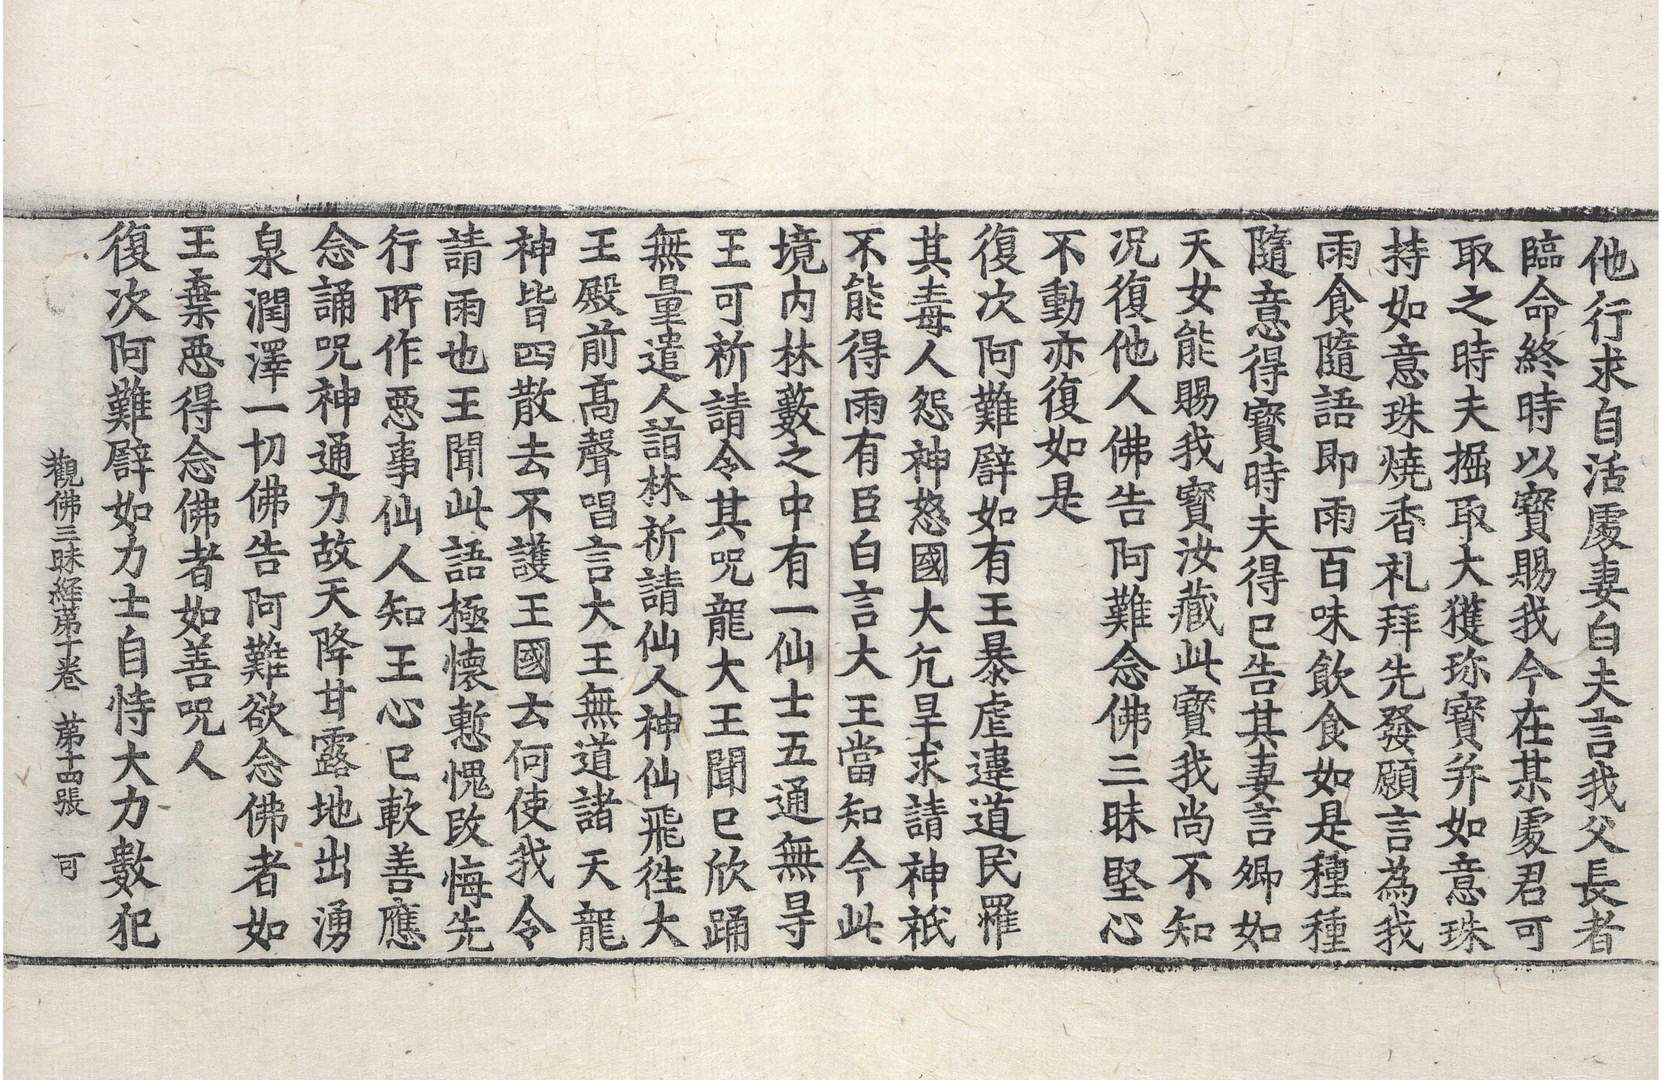 他行求自活處妻白夫言我父長者
臨命終時以寶賜我今在某處君可
取之時夫掘取大獲珎寶并如意珠
持如意珠燒香礼拜先發願言為我
雨食隨語即雨百味飲食如是種種
隨意得寶時夫得已告其妻言卿如
天女能賜我寶汝藏此寶我尚不知
况復他人佛告阿難念佛三昧堅心
不動亦復如是
復次阿難譬如有王暴虐違道民罹
其毒人怨神怒國大亢旱求請神祇
不能得雨有臣白言大王當知今此
境内林藪之中有一仙士五通無㝵
王可祈請令其呪龍大王聞已欣踊
無量遣人詣林祈請仙人神仙飛徃大
王殿前高聲唱言大王無道諸天龍
神皆四散去不護王國去何使我令
請雨也王聞此語極懷慙愧改悔先
行所作惡事仙人知王心已軟善應
念誦呪神通力故天降甘露地出湧
泉潤澤一切佛告阿難欲念佛者如
王棄惡得念佛者如善呪人
復次阿難譬如力士自恃大力數犯
觀佛三昧經苐十卷　苐十四張　可